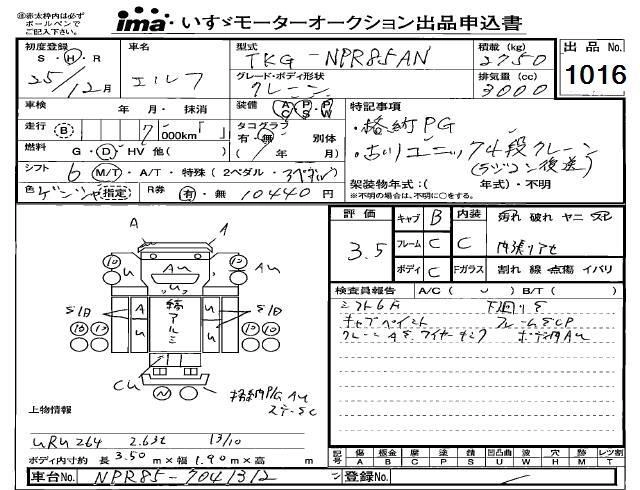 ※赤太枠内は必ず
ボールペンで
ご記入下さい。
ima いすゞモーターオークション出品申込書
初度登録
S・H・R
25/12月
車名
エルフ
型式
TKG-NPR85AN
グレード・ボディ形状
クレーン
積載(kg)
2750
排気量(cc)
3000
出品No.
1016
車検 年 月・ 抹消
装備 AC PS PW
特記事項
・格納PG
・古河ユニック4段クレーン
(ラジコン後送)
走行 (B) 7 000km
タコグラフ
有・無 別体
( 年 月)
燃料 G・D・HV 他( )
シフト 6 M/T・A/T・特殊(2ペダル・3ペダル)
架装物年式:( 年式)・不明
※不明の場合は、不明に○をする。
色 ゲンシャ指定 R券 有・無 10440円
評価
3.5
キャブ B
内装 C
汚れ 破れ ヤニ
フレーム C
内張リアセ
ボディ C
Fガラス
割れ 線 点傷 イバリ
検査員報告 A/C( ) B/T( )
シフト6A 下廻りS
キャブペイント フレームSCP
ボディ内Au
A A
Au
Au
U
A
U
U
S1日
S1日
縞アルミ
CU
格納P/G Au
ステーSC
上物情報
URU264 2.63t 13/10
ボディ内寸約 長 3.50 m×幅 1.90 m×高 m
記号 傷 A 板金 B 腐 C 塗 P 錆 S 凹凸曲 U 波 W 穴 H 跡 M レツ割 T
車台No. NPR85-7041312
登録No.